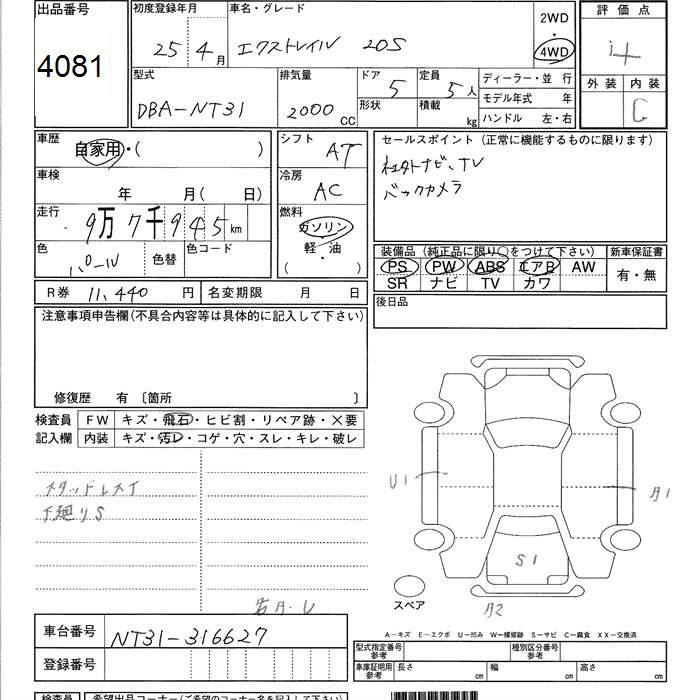 出品番号
4081
初度登録年月
25 年 4 月
車名・グレード
エクストレイル 20S
2WD
4WD
評価点
外装 内装
C
型式
DBA-NT31
排気量
2000 CC
ドア 5
形状
定員 5 人
積載 kg
ディーラー・並 行
モデル年式 年
ハンドル 左・右
車歴
自家用・( )
車検
年 月( 日)
走行
9万7千945 km
色
パール
色替
色コード
シフト
AT
冷房
AC
燃料
ガソリン・
軽・油
( )
セールスポイント(正常に機能するものに限ります)
社外ナビ、TV
バックカメラ
装備品(純正品に限り○をつけて下さい)
PS PW ABS エアB AW
SR ナビ TV カワ
新車保証書
有・無
R券 11,440 円
名変期限 月 日
後日品
注意事項申告欄(不具合内容等は具体的に記入して下さい)
修復歴 有〔箇所 〕
検査員
記入欄
FW キズ・飛石・ヒビ割・リペア跡・×要
内装 キズ・汚レ・コゲ・穴・スレ・キレ・破レ
スタッドレスイ
下廻りS
U1
A1
S1
スペア
A2
A―キズ E―エクボ U―凹み W―補修跡 S―サビ C―腐食 XX―交換済
車台番号
NT31-316627
登録番号
型式指定番号
参考
種別区分番号
参考
車庫証明用
参考
長さ cm 幅 cm 高さ cm
検査員
希望出品コーナー(ご希望のコーナー名を記入下さい)